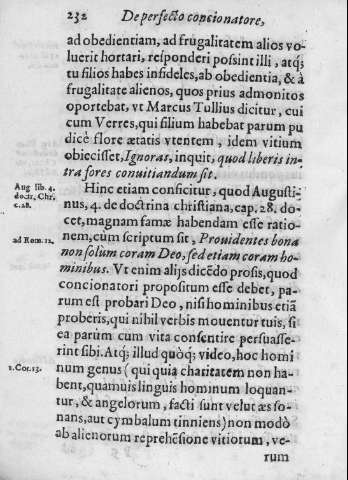 232 De perfecto concionatore,
ad obedientiam, ad frugalitatem alios vo-
luerit hortari, responderi possint illi, atq;
tu filios habes infideles, ab obedientia, & à
frugalitate alienos, quos prius admonitos
oportebat, vt Marcus Tullius dicitur, cui
cum Verres, qui filium habebat parum pu
dicè flore ætatis vtentem, idem vitium
obiecisset, Ignoras, inquit, quod liberis in-
tra fores conuitiandum sit.
Aug lib. 4.
doctr, Chr,
c. 28.
Hinc etiam conficitur, quod Augusti-
nus, 4. de doctrina christiana, cap. 28. do-
cet, magnam famæ habendam esse ratio-
ad Rom. 12.
nem, cum scriptum sit, Prouidentes bona
non solum coram Deo, sed etiam coram ho-
minibus. Vt enim alijs dicēdo prosis, quod
concionatori propositum esse debet, pa-
rum est probari Deo, nisi hominibus etiā
proberis, qui nihil verbis mouentur tuis, si
ea parùm cum vita consentire persuasse-
rint sibi. Atq; illud quòq; video, hoc homi
1. Cor. 13.
num genus (qui quia charitatem non ha-
bent, quamuis linguis hominum loquan-
tur, & angelorum, facti sunt velut æs so-
nans, aut cymbalum tinniens) non modò
ab alienorum reprehēsione vitiorum, ve-
rum